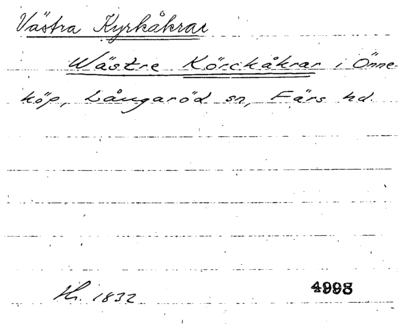 Västra Kyrkåkrar
Wästre Körckåkrar i Önne-
köp, Långaröd sn, Färs hd.
Hr. 1832 4998